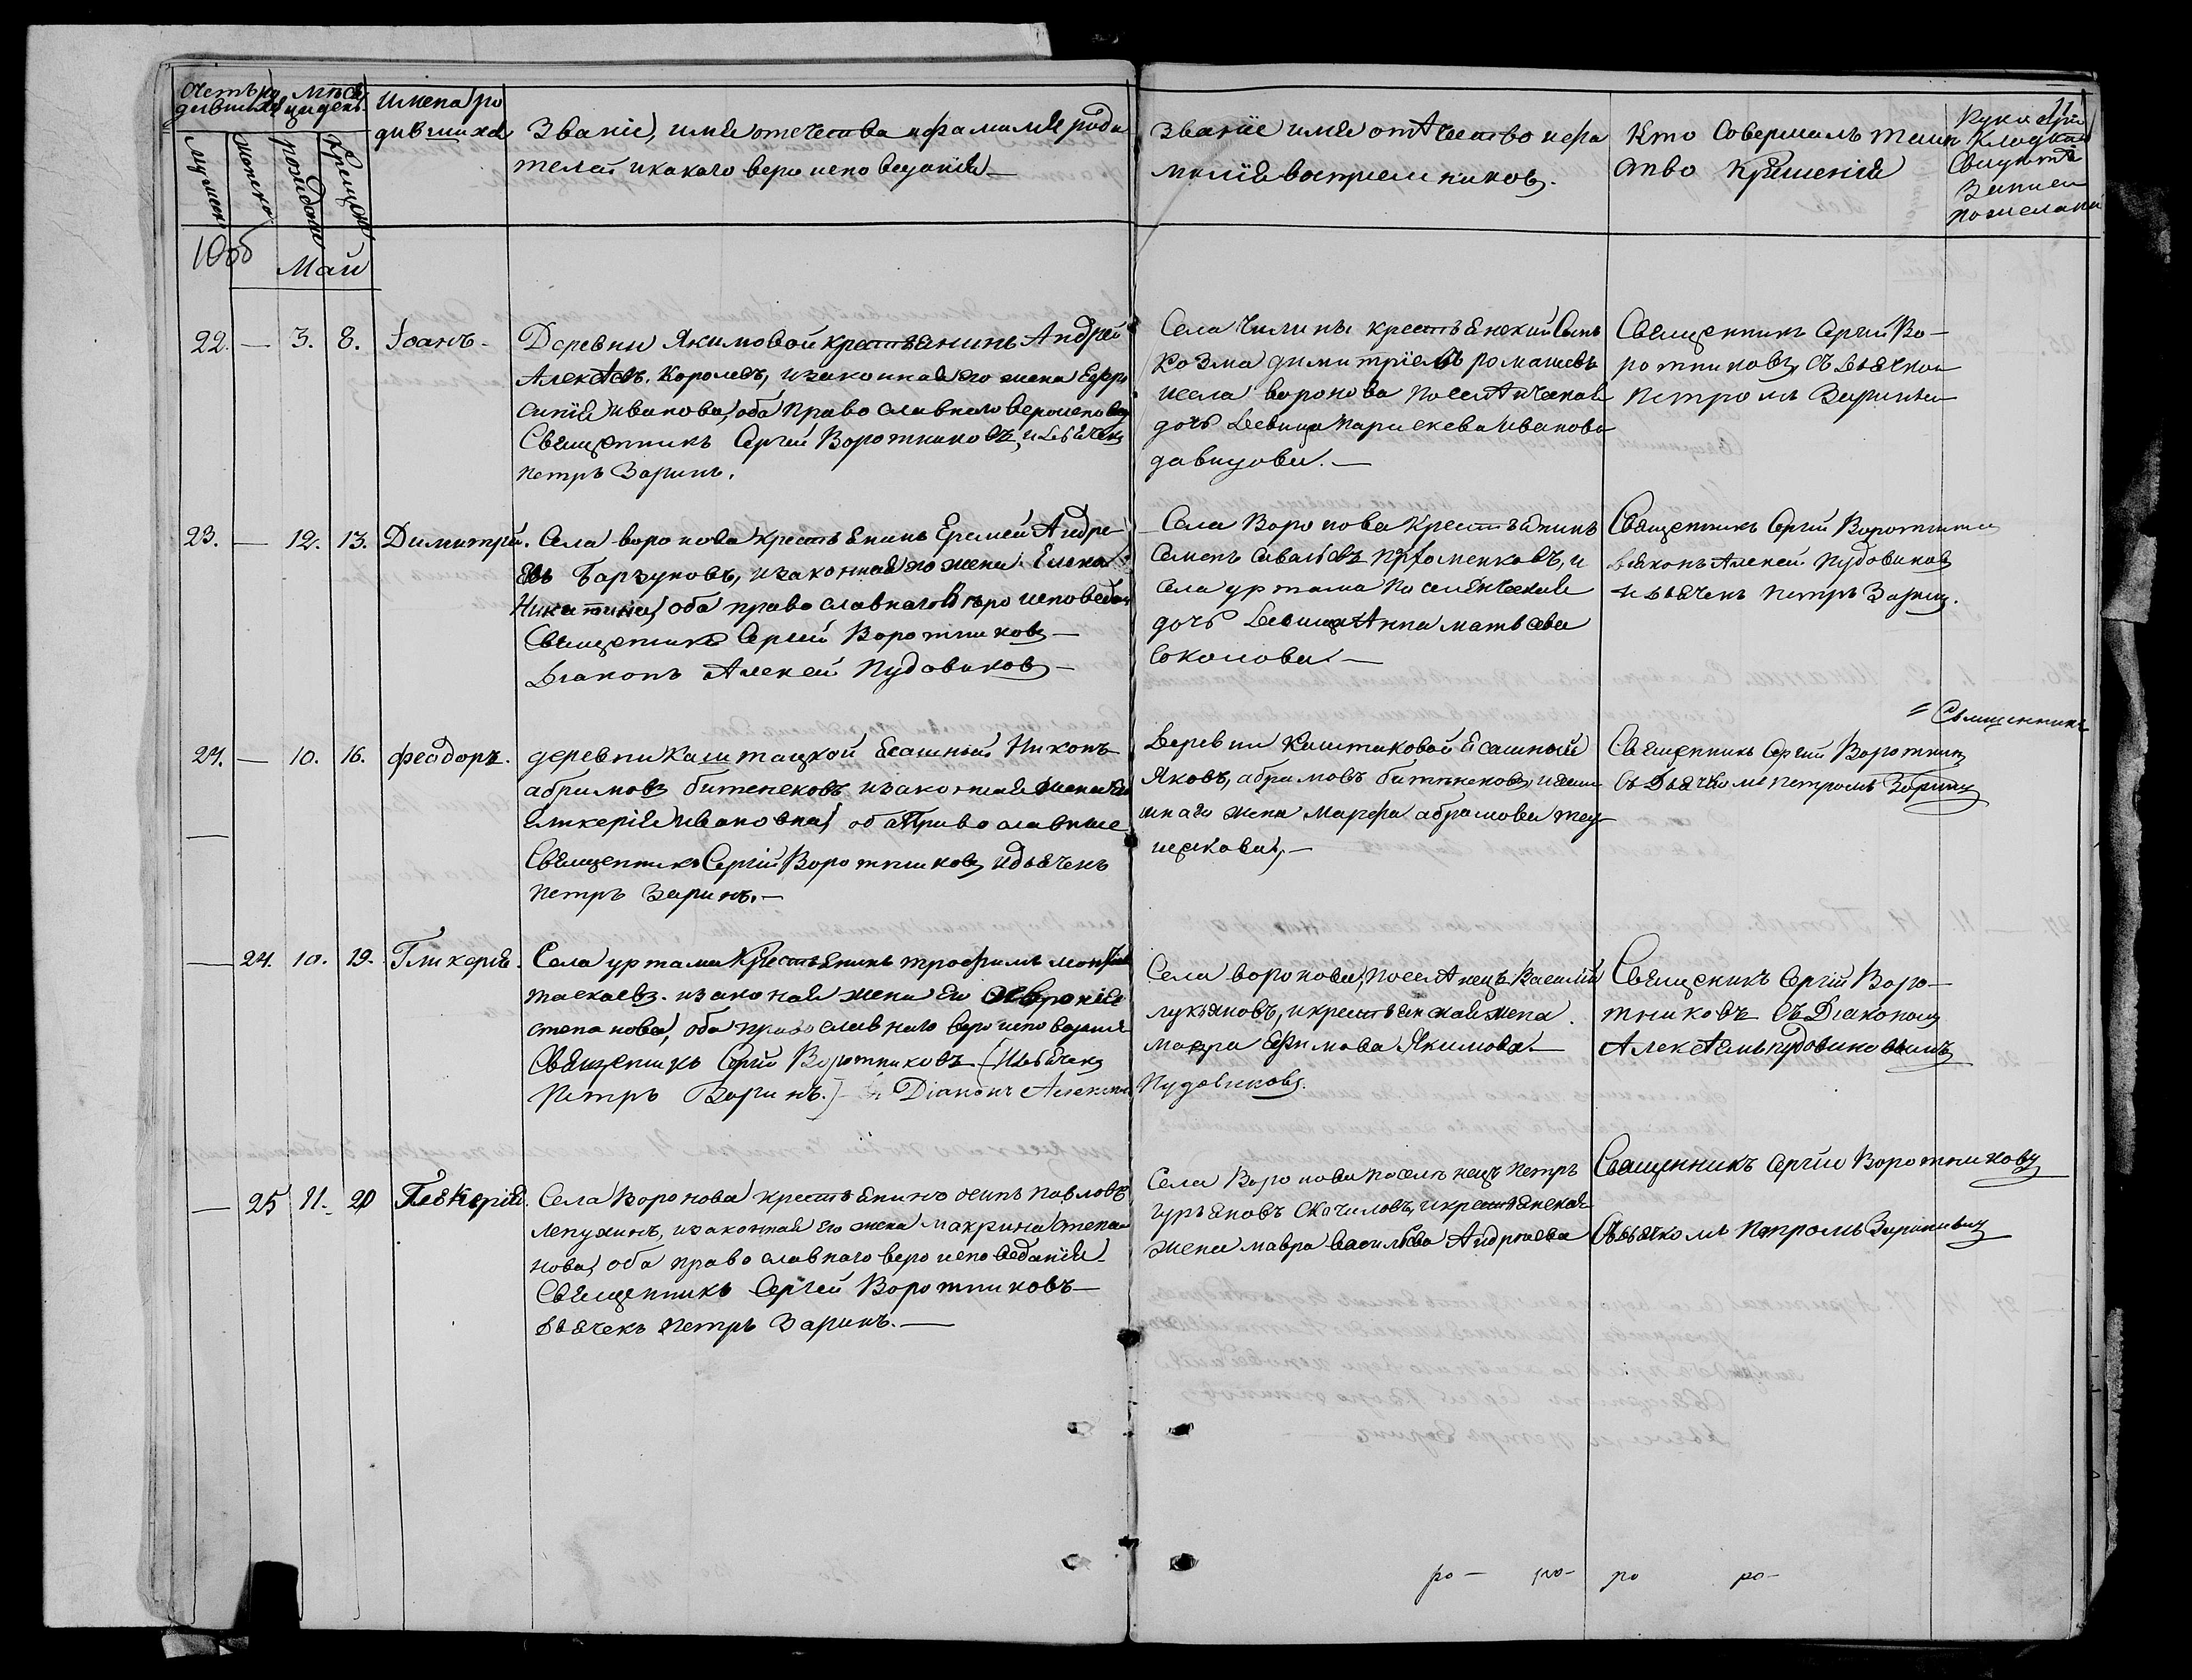 Счетъ ро
дившихся
мѣся
ца и день
мужеска
женска
рождения
крещения
имена ро
дившихся
Званіе, имя отечества и фамилія роди
телей и какого вероисповеданія —
Званіе имя отчество и фа
миліа воспрiемниковъ.
Кто совершалъ таин
ство крещенія
Руки при
кладство
свидете
записи
по желани
Май
22. — 3. 8. Іоанъ.
Деревни Якимовой крестьянинъ Андрей
Алексѣевъ. Королевъ, и законная его жена Евфро
синія иванова, оба православнаго вероисповед
Священникъ Сергій Воротниковъ, и дьячекъ
Петръ Заринъ.
Села Чилины крестьянский сынъ
Козма димитріевъ ромашевъ
и села воронова поселянческая
дочь девица Параскева Иванова
давидова. —
Священникъ Сергій Во-
ротниковъ, съ дьячком
Петромъ Зариным
23. — 12. 13. Димитрій.
Села воронова крестьянинъ Еремей Андре-
евъ Барзуновъ, и законная его жена Елена
Никитина, оба православнаго вероисповедан
Священникъ Сергій Воротниковъ —
Діаконъ Алексей Пудовиковъ —
Села Воронова крестьянинъ
Семенъ Савельевъ Артоменковъ, и
села уртама поселянческая
дочь девица Анна матвеева
Соколова. —
Священникъ Сергій Воротник
діаконъ Алексей Пудовиковъ
и дьячекъ Петръ Заринъ.
24. — 10. 16. феодоръ.
деревни Каштацкой Есашный Никонъ
абрамовъ битенековъ и законная жена его
Гликерія Ивановна, оба Православные
Священникъ Сергій Воротниковъ и дьячекъ
Петръ Заринъ. —
Деревни Каштаковой Есашный
Яковъ, абрамовъ битенековъ, и есаш
шнаго жена Марфа абрамова
= Священникъ
Священникъ Сергій Воротник
съ Дьячкомъ Петромъ Зарины
— 24. 10. 19. Гликерія.
Села уртама крестьянинъ трофимъ
таскаевъ. и законая жена его Феврония
степанова, оба православнаго вероисповедания
Священникъ Сергій Воротниковъ (и дьячекъ
Петръ Заринъ.) — и Діаконъ Алексей
Пудовиковъ.
Села воронова, поселянецъ Василій
лукьяновъ, и крестьянская жена
мавра Ефимова Якимова. —
Священикъ Сергій Воро-
тниковъ съ Діакономъ
Алексѣемъ пудовиковымъ
— 25 11. 20 Гликерія.
Села Воронова крестьянинъ осипъ павловъ
Лепухинъ, и законная его жена макрина степа
нова, оба православнаго вероисповеданія
Священникъ Сергей Воротниковъ —
дьячекъ Петръ Заринъ. —
Села Воронова поселенецъ Петръ
гурьяновъ Скочиловъ, и крестьянская
жена мавра васильева Андреева
Священникъ Сергій Воротниковъ
Съ дьячкомъ Петромъ Зариным
ро — ро — ро ро —